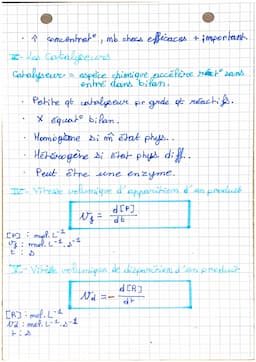 · ↑ concentrat°, nb chocs efficaces + important.
II - Les Catalyseurs
Catalyseur = espèce chimique accélère réact° sans
entré dans bilan.
· Petite qt catalyseur pr grde qt réactifs.
· X équat° bilan.
· Homogène si m̂ état phys..
· Hétérogène si état phys diff..
· Peut être une enzyme.
- Vitesse volumique d'apparition d'un produit
vf = d[P]/dt
[P] : mol.L⁻¹
vf : mol.L⁻¹.s⁻¹
t : s
- Vitesse volumique de disparition d'un produit
vd = - d[R]/dt
[R] : mol.L⁻¹
vd : mol.L⁻¹.s⁻¹
t : s